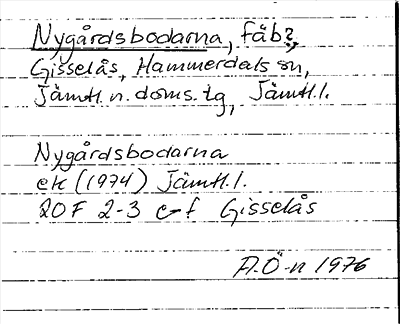 Nygårdsbodarna, fäb?,
Gisselås, Hammerdals sn,
Jämtl. n. doms. tg, Jämtl. l.
Nygårdsbodarna
ek (1974) Jämtl. l.
20F 2-3 e-f Gisselås
A.Ö-n 1976